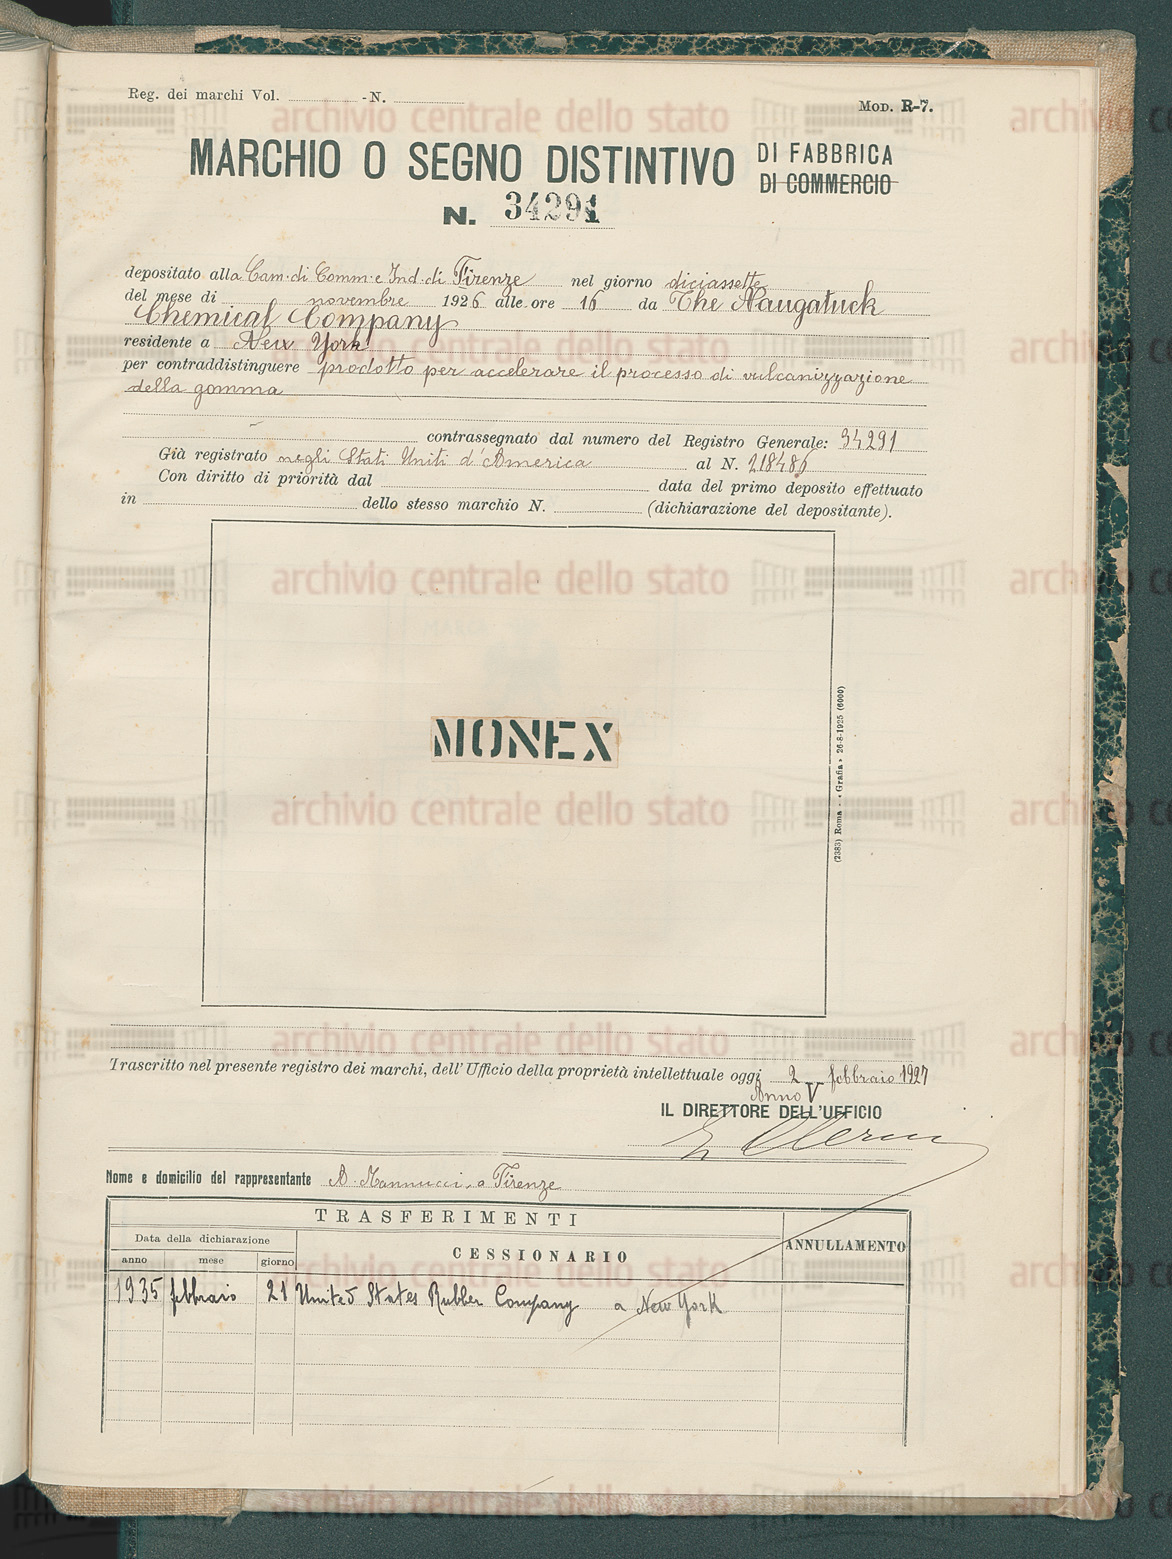 Reg. dei marchi Vol. - N.
MOD. R-7.
MARCHIO O SEGNO DISTINTIVO DI FABBRICA
DI COMMERCIO
N. 34291
depositato alla Cam. di Comm. e Ind. di Firenze nel giorno diciassette
del mese di novembre 1926 alle ore 16 da The Naugatuck
Chemical Company
residente a New York
per contraddistinguere prodotto per accelerare il processo di vulcanizzazione
della gomma
contrassegnato dal numero del Registro Generale: 34291
Già registrato negli Stati Uniti d'America al N. 218486
Con diritto di priorità dal data del primo deposito effettuato
in dello stesso marchio N. (dichiarazione del depositante).
MONEX
(2383) Roma - « Grafia » 26-8-1925 (6000)
Trascritto nel presente registro dei marchi, dell'Ufficio della proprietà intellettuale oggi 2 febbraio 1927
Anno V
IL DIRETTORE DELL'UFFICIO
Nome e domicilio del rappresentante A. Mannucci, a Firenze
TRASFERIMENTI
Data della dichiarazione
anno mese giorno
CESSIONARIO
ANNULLAMENTO
1935 febbraio 21 United States Rubber Company a New York
archivio centrale dello stato